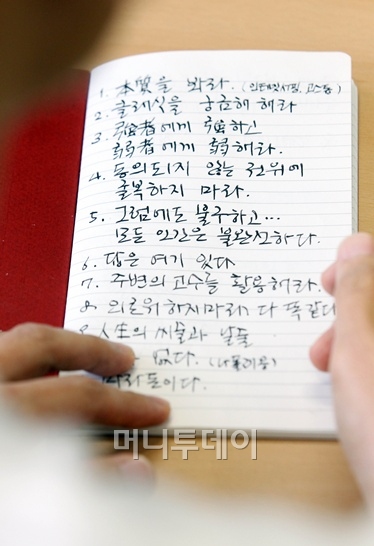 1. 本質을 봐라. (인터넷서핑, 고스톱)
2. 클래식을 궁금해 해라
3. 强者에게 强하고
弱者에게 弱해라.
4. 동의되지 않는 권위에
굴복하지 마라.
5. 그럼에도 불구하고...
모든 인간은 불완전하다.
6. 답은 여기 있다
7. 주변의 고수를 활용해라.
8. 외로워하지마라, 다 똑같다
9. 人生의 씨줄과 날들
없다.
이다.
머니투데이